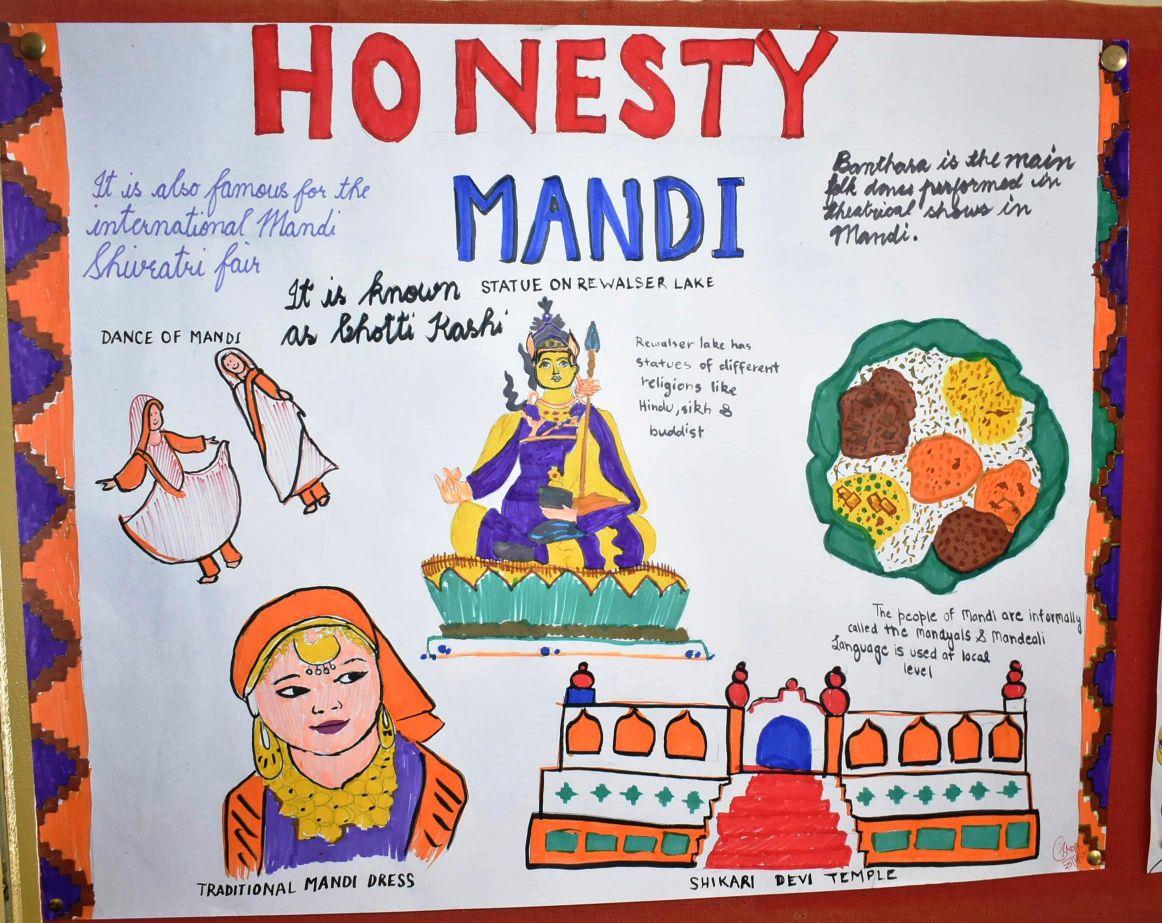 HONESTY
MANDI
It is also famous for the
international Mandi
Shivratri fair
It is known
as Chotti Kashi
STATUE ON REWALSER LAKE
Banthara is the main
folk dance performed in
theatrical shows in
Mandi.
DANCE OF MANDI
Rewalser lake has
statues of different
religions like
Hindu, sikh &
buddist
The people of Mandi are informally
called the mandyals & Mandeali
Language is used at local
level
TRADITIONAL MANDI DRESS
SHIKARI DEVI TEMPLE